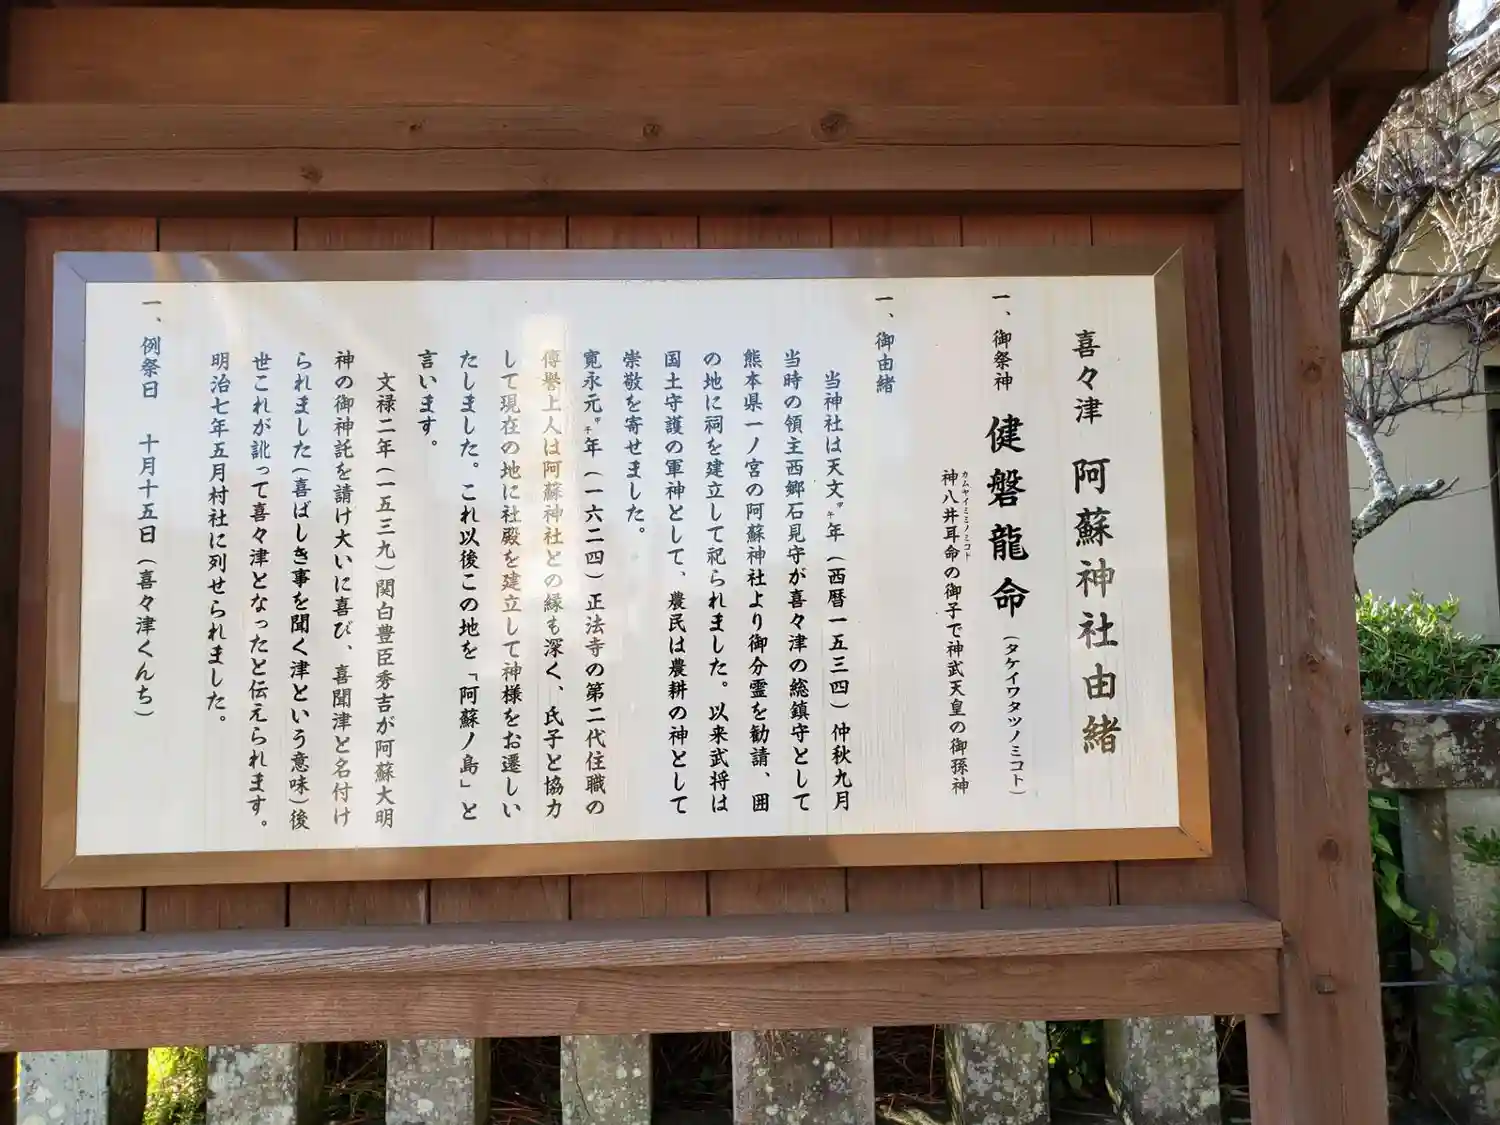 喜々津 阿蘇神社由緒
一、御祭神 健磐龍命（タケイワタツノミコト）
カムヤイミミノミコト
神八井耳命の御子で神武天皇の御孫神
一、御由緒
当神社は天文甲午年（西暦一五三四）仲秋九月
当時の領主西郷石見守が喜々津の総鎮守として
熊本県一ノ宮の阿蘇神社より御分霊を勧請、囲
の地に祠を建立して祀られました。以来武将は
国土守護の軍神として、農民は農耕の神として
崇敬を寄せました。
寛永元甲子年（一六二四）正法寺の第二代住職の
傳譽上人は阿蘇神社との縁も深く、氏子と協力
して現在の地に社殿を建立して神様をお遷しい
たしました。これ以後この地を「阿蘇ノ島」と
言います。
文禄二年（一五三九）関白豊臣秀吉が阿蘇大明
神の御神託を請け大いに喜び、喜聞津と名付け
られました（喜ばしき事を聞く津という意味）後
世これが訛って喜々津となったと伝えられます。
明治七年五月村社に列せられました。
一、例祭日 十月十五日（喜々津くんち）